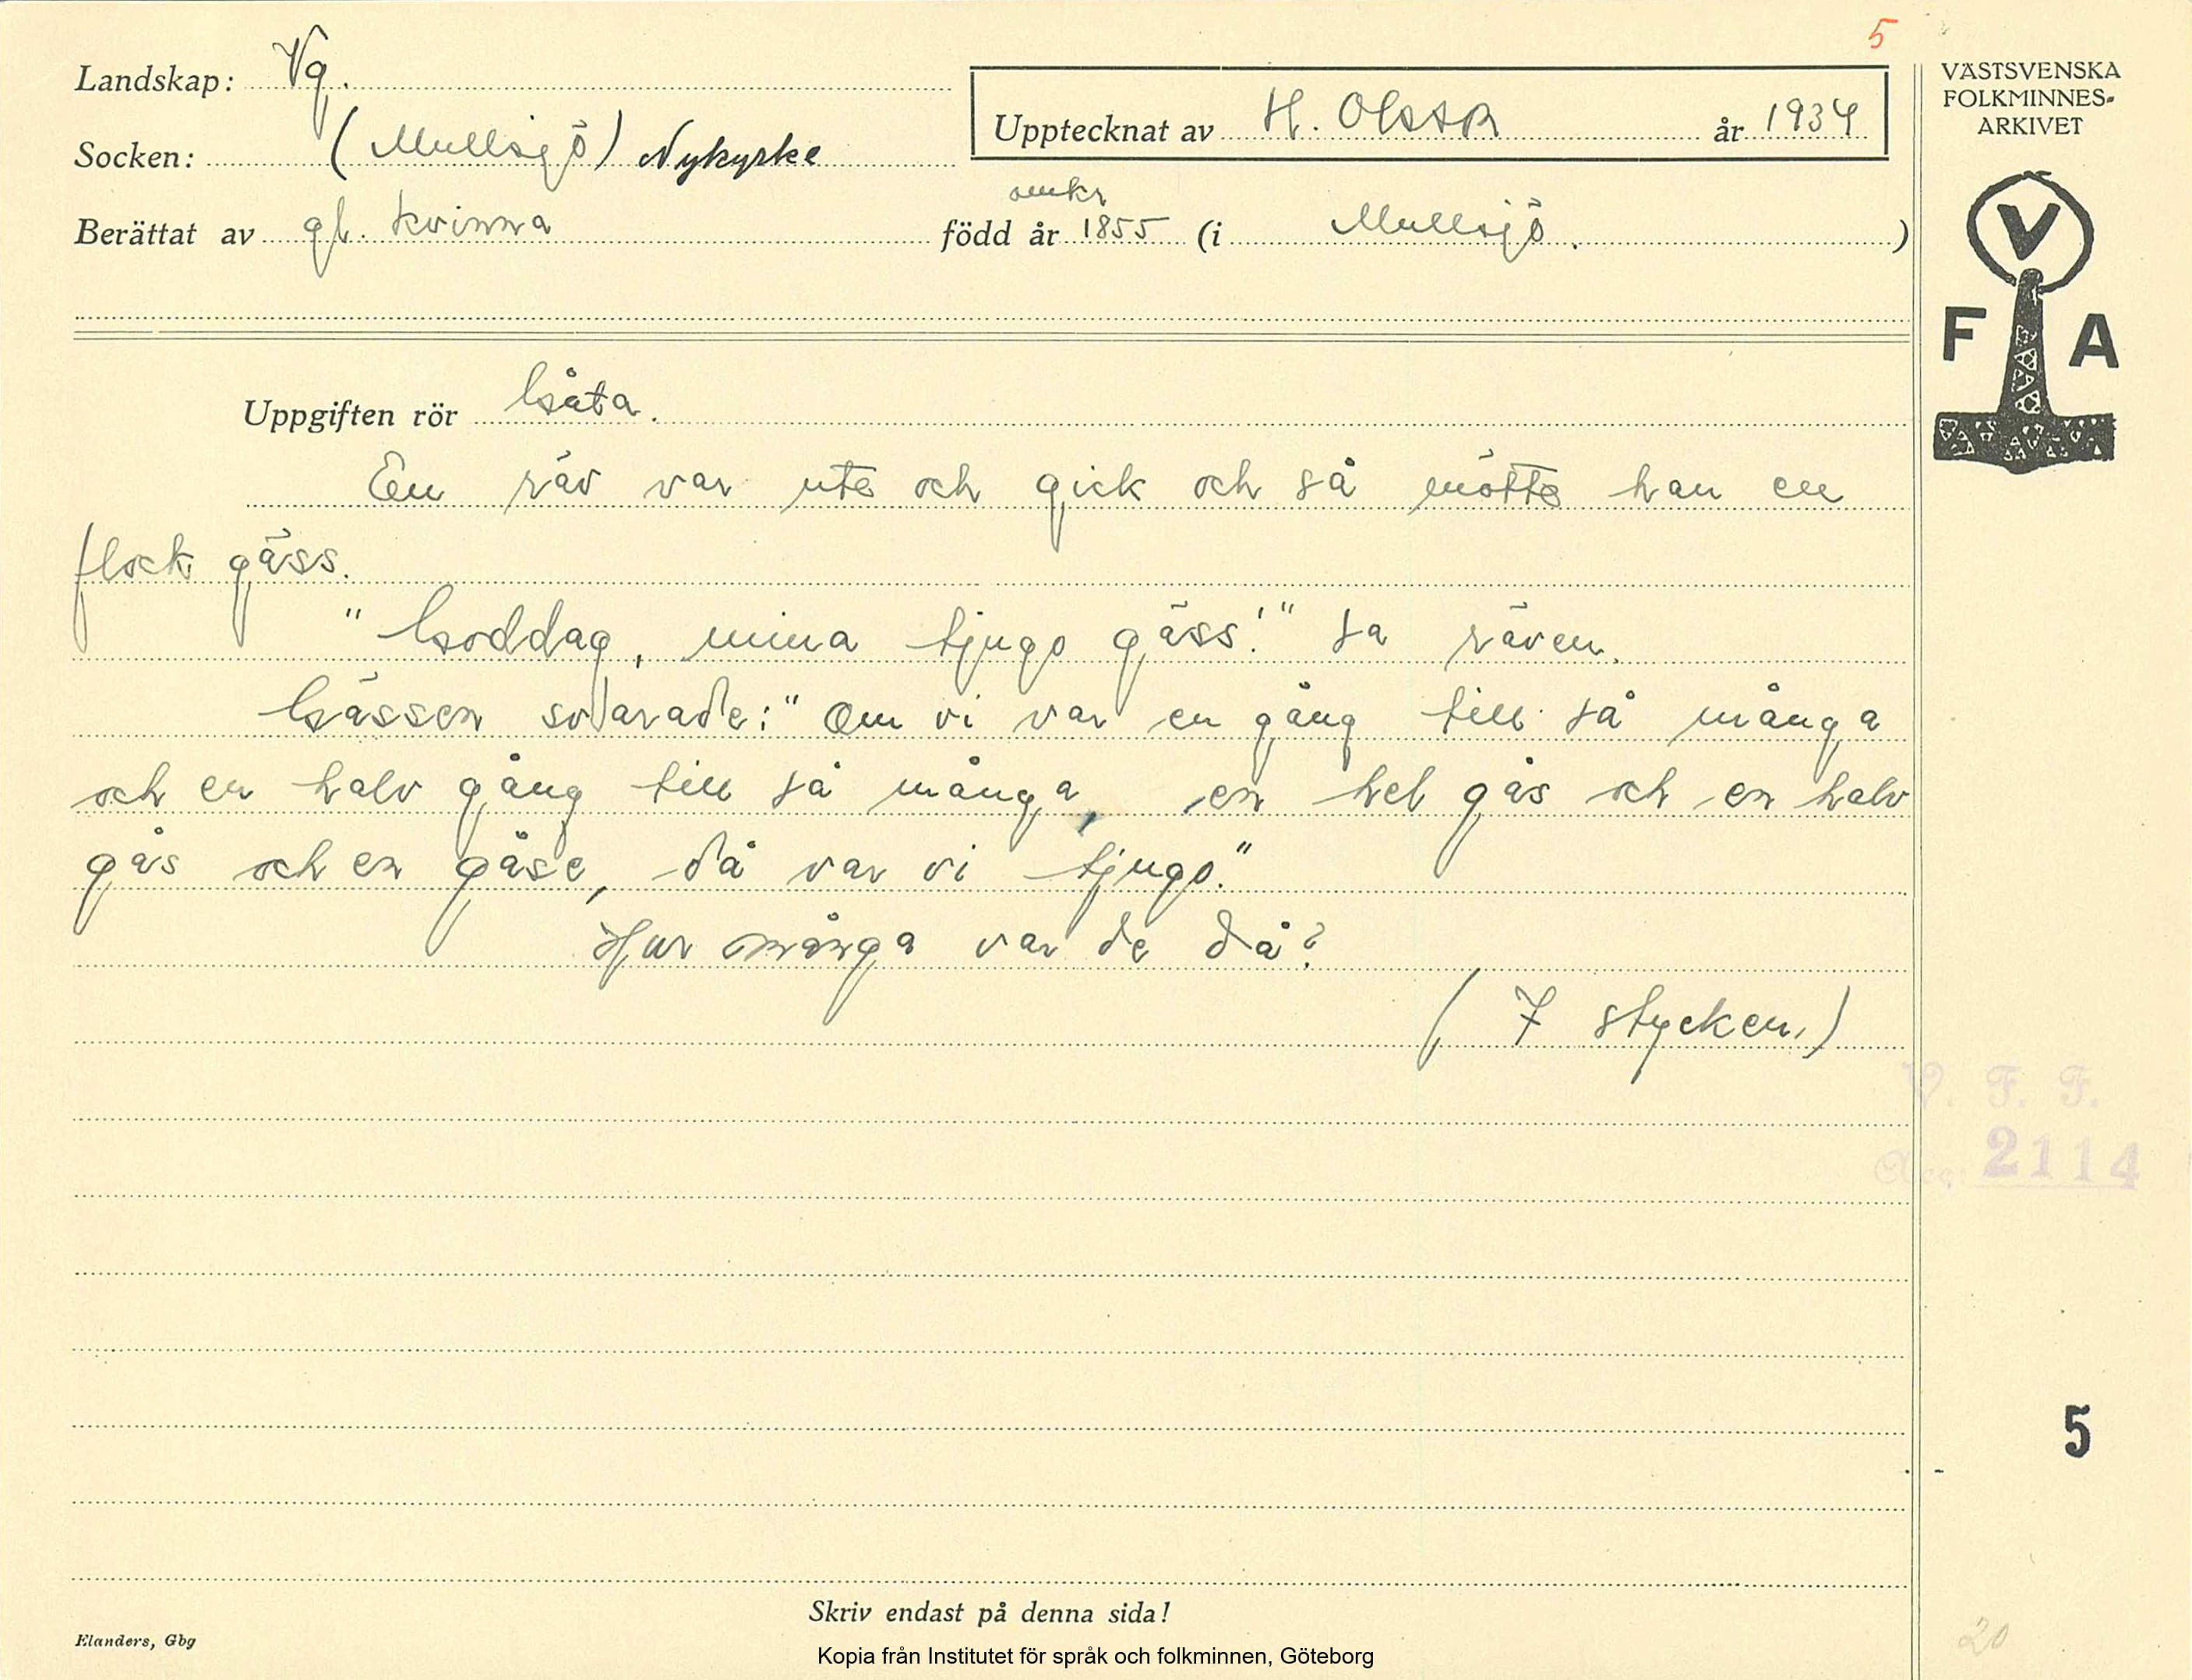 5
Landskap: Vg.
Socken: (Mullsjö) Nykyrke
Upptecknat av H. Olsson år 1934
Berättat av gl. kvinna född år omkr 1855 (i Mullsjö.)
VÄSTSVENSKA
FOLKMINNES-
ARKIVET
V
F A
Uppgiften rör Gåta.
En räv var ute och gick och så mötte han en
flock gäss.
"Goddag, mina tjugo gäss!" sa räven.
Gässen svarade: "Om vi var en gång till så många
och en halv gång till så många, en hel gås och en halv
gås och en gåse, då var vi tjugo."
Hur många var de då?
(7 stycken.)
V. F. F.
Acc. 2114
5
Skriv endast på denna sida!
Elanders, Gbg
20
Kopia från Institutet för språk och folkminnen, Göteborg